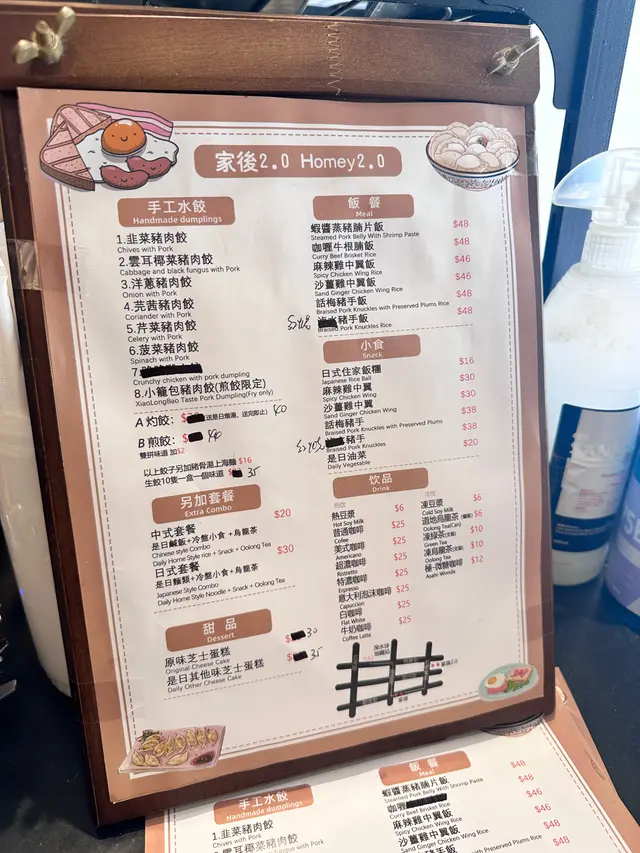 家後2.0 Homey2.0
手工水餃
Handmade dumplings
1.韭菜豬肉餃
Chives with Pork
2.雲耳椰菜豬肉餃
Cabbage and black fungus with Pork
3.洋蔥豬肉餃
Onion with Pork
4.芫茜豬肉餃
Coriander with Pork
5.芹菜豬肉餃
Celery with Pork
6.菠菜豬肉餃
Spinach with Pork
7.
Crunchy chicken with pork dumpling
8.小籠包豬肉餃(煎餃限定)
XiaoLongBao Taste Pork Dumpling(Fry only)
A 灼餃: $ 送是日燉湯, 送完即止) 40
B 煎餃: $ 40
雙拼味道 加$2
以上餃子另加豬骨湯上海麵 $16
生餃10隻一盒一個味道 35
另加套餐
Extra Combo
中式套餐 $20
是日鹹飯+冷盤小食+烏龍茶
Chinese style Combo
Daily Home Style rice + Snack + Oolong Tea
日式套餐 $30
是日麵類+冷盤小食+烏龍茶
Japanese Style Combo
Daily Home Style Noodle + Snack + Oolong Tea
甜品
Dessert
原味芝士蛋糕 $ 30
Original Cheese Cake
是日其他味芝士蛋糕 $ 35
Daily Other Cheese Cake
飯餐
Meal
蝦醬蒸豬腩片飯 $48
Steamed Pork Belly With Shrimp Paste
咖喱牛根腩飯 $48
Curry Beef Brisket Rice
麻辣雞中翼飯 $46
Spicy Chicken Wing Rice
沙薑雞中翼飯 $46
Sand Ginger Chicken Wing Rice
話梅豬手飯 $48
Braised Pork Knuckles with Preserved Plums Rice
豬手飯 $48
Braised Pork Knuckles Rice
小食
Snack
日式住家飯糰 $16
Japanese Rice Ball
麻辣雞中翼 $30
Spicy Chicken Wing
沙薑雞中翼 $30
Sand Ginger Chicken Wing
話梅豬手 $38
Braised Pork Knuckles with Preserved Plums
豬手 $38
Braised Pork Knuckles
是日油菜 $20
Daily Vegetable
飲品
Drink
熱飲
熱豆漿 $6
Hot Soy Milk
普通咖啡 $25
Coffee
美式咖啡 $25
Americano
超濃咖啡 $25
Ristretto
特濃咖啡 $25
Erpresso
意大利泡沫咖啡 $25
Capuccion
白咖啡 $25
Flat White
牛奶咖啡 $25
Coffee Latte
冷飲
凍豆漿 $6
Cold Soy Milk
道地烏龍茶 $6
Oolong Tea(Can)
凍綠茶 $10
Green Tea
凍烏龍茶 $10
Oolong Tea
極·微糖咖啡 $12
Asahi Wonda
手工水餃
Handmade dumplings
1.韭菜豬肉餃
Chives with Pork
飯餐
Meal
蝦醬蒸豬腩片飯 $48
Steamed Pork Belly With Shrimp Paste
咖喱 $48
Curry Beef Brisket Rice
麻辣雞中翼飯 $46
Spicy Chicken Wing Rice
沙薑雞中翼飯 $46
Sand Ginger Chicken Wing Rice
$48